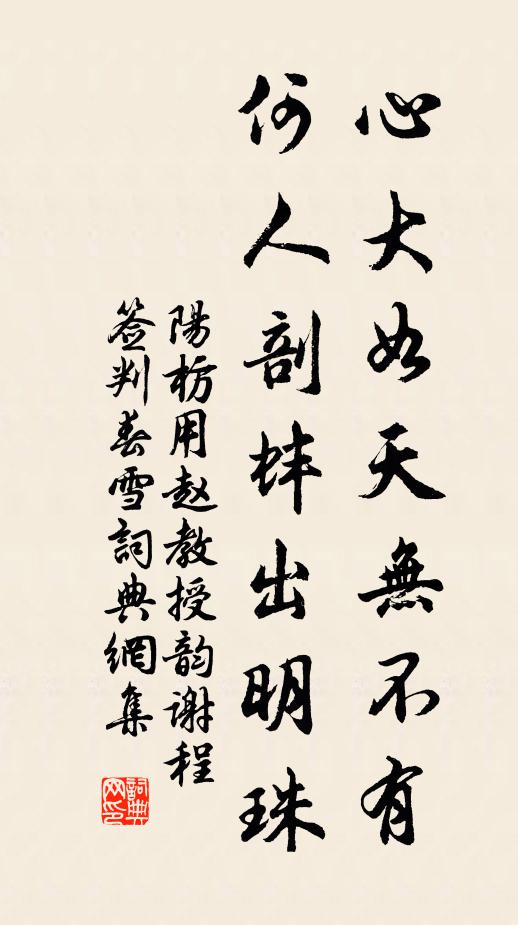 心大如天無不有
何人剖蚌出明珠
陽枋用赵教授韵謝程
签判春雪詞典網集
詞典網印